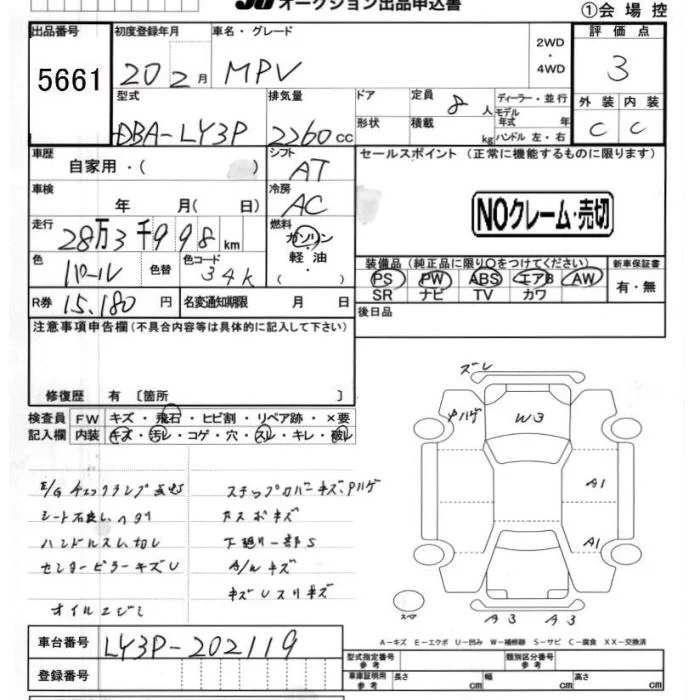 オークション出品申込書
①会場控
出品番号 初度登録年月 車名・グレード 2WD・4WD 評価点
5661 20 2月 MPV 3
型式 排気量 ドア 定員 8人 ディーラー・並行 外装 内装
DBA-LY3P 2260cc 形状 積載 kg モデル年式 年 C C
ハンドル 左・右
車歴 シフト セールスポイント (正常に機能するものに限ります)
自家用・( ) AT
車検 冷房 NOクレーム・売切
年 月( 日) AC
走行 燃料
28万3千998km ガソリン・軽油・( )
色 パール 色替 色コード 34K
装備品 (純正品に限り○をつけてください) 新車保証書
PS PW ABS エアB AW 有・無
SR ナビ TV カワ
R券 15,180円 名変通知期限 月 日 後日品
注意事項申告欄(不具合内容等は具体的に記入して下さい)
修復歴 有 〔箇所 〕
検査員 FW キズ・飛石・ヒビ割・リペア跡・×要
記入欄 内装 キズ・汚レ・コゲ・穴・スレ・キレ・破レ
E/Gチェックランプ点灯 ステップカバーキズ、Pハゲ
ハンドルスレ 下廻り一部S
センターピラーキズU A/Wキズ
オイルニジミ
ズレ
Pハゲ W3
A1
A1
スペア A3 A3
A-キズ E-エクボ U-凹み W-補修跡 S-サビ C-腐食 XX-交換済
車台番号 LY3P-202119
型式指定番号 参考 類別区分番号 参考
登録番号 車庫証明用 参考 長さ cm 幅 cm 高さ cm